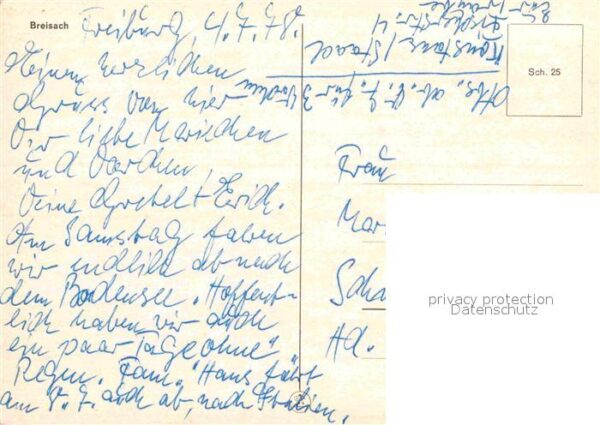 Breisach
Freiburg, 4.7.78.
Meinen herzlichen
Gruss von hier
Dir liebe Mariechen
und Dorchen,
Deine Gretel + Erich.
Am Samstag faren
wir endlich ab nach
dem Bodensee. Hoffent-
lich haben wir auch
ein paar Tage ohne
Regen. Fam. "Hans" färt
am 8.7. auch ab, nach Italien.
Konstanz / Staad
ab. 8.7. für 3 Wochen
Sch. 25
Frau
Mar
Scha
Hd.
privacy protection
Datenschutz